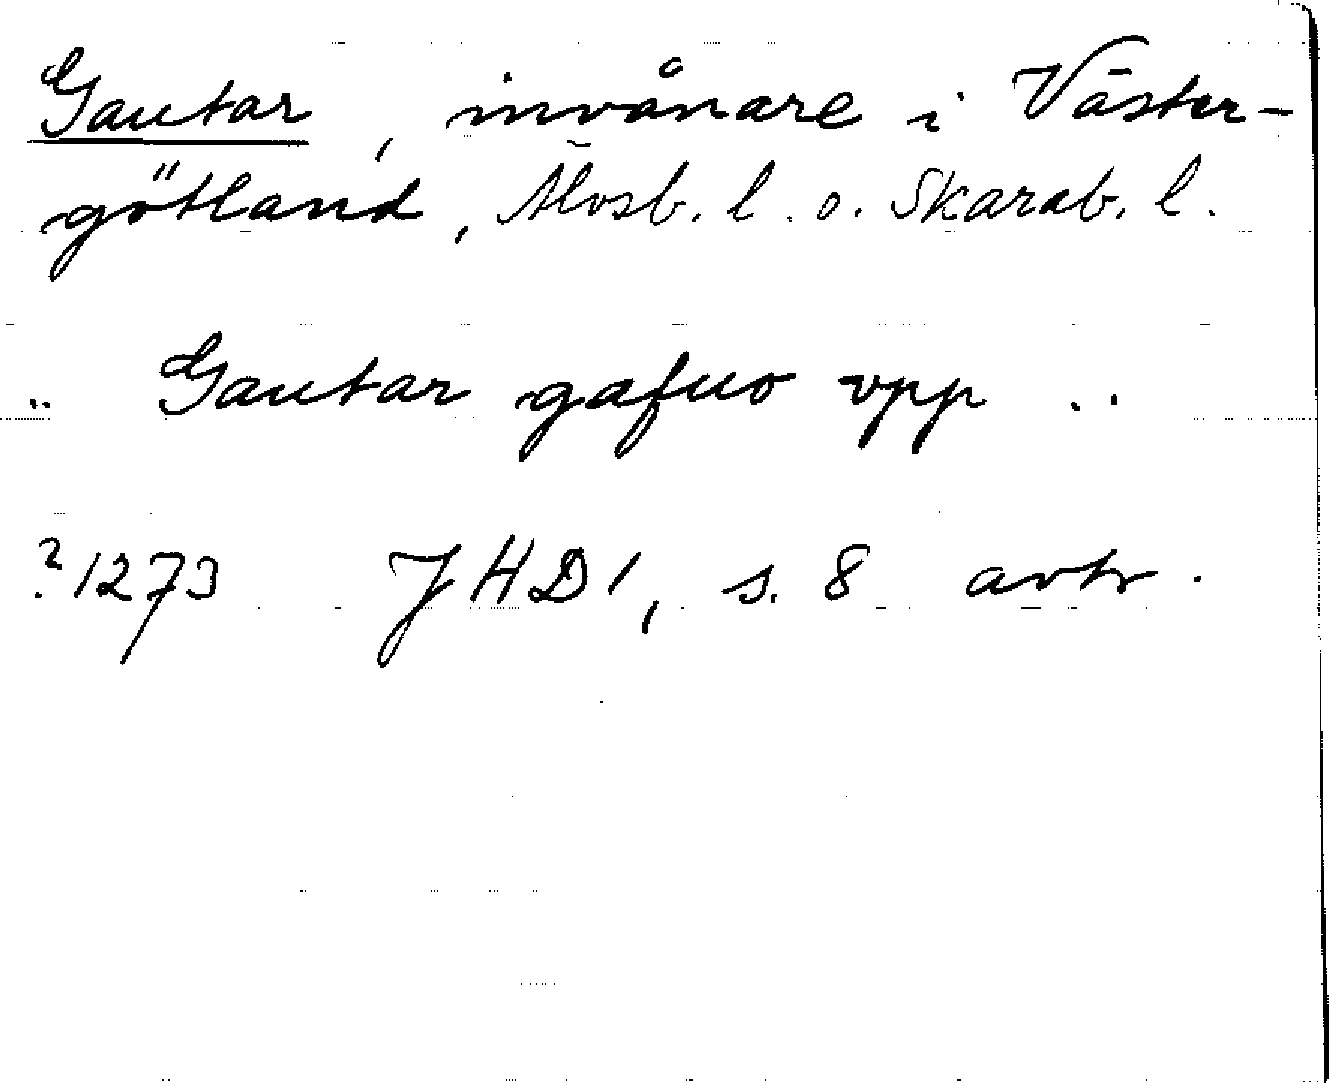 Gautar, invånare i Väster-
götland, Älvsb. l. o. Skarab. l.
.. Gautar gafuo vpp ..
?1273 JHD 1, s. 8 avtr.